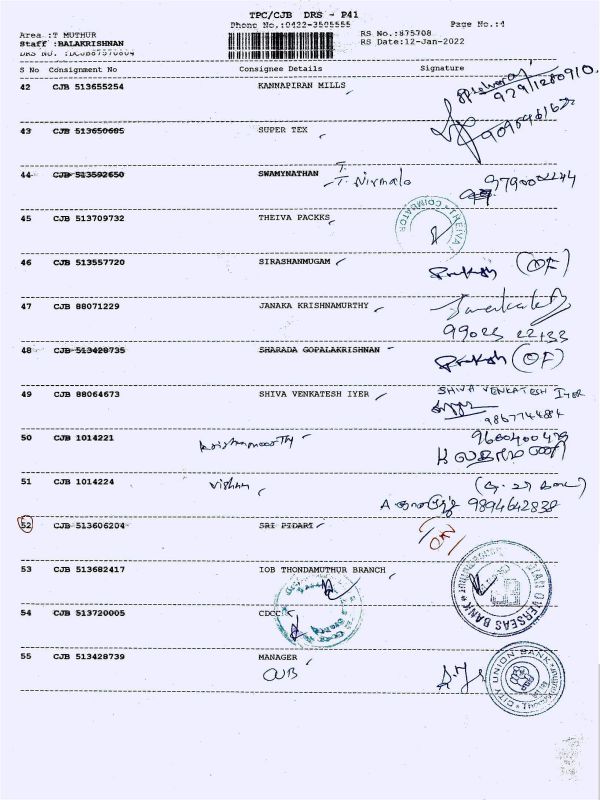 TPC/CJB DRS - P41
Phone No.:0422-3505555 Page No.:4
Area :T MUTHUR RS No.:875708
Staff :BALAKRISHNAN RS Date:12-Jan-2022
S No Consignment No Consignee Details Signature
42 CJB 513655254 KANNAPIRAN MILLS
9791280910
43 CJB 513650685 SUPER TEX
44 CJB 513592650 SWAMYNATHAN T. Nirmala
45 CJB 513709732 THEIVA PACKKS
THEIVA COIMBATOR
46 CJB 513557720 SIRASHANMUGAM Prakash (OF)
47 CJB 88071229 JANAKA KRISHNAMURTHY
99025 22133
48 CJB 513428735 SHARADA GOPALAKRISHNAN Prakash (OF)
49 CJB 88064673 SHIVA VENKATESH IYER SHIVA VENKATESH IYER
9867744884
50 CJB 1014221 Krishnamoorthy
51 CJB 1014224 Vishnu
9894642838
52 CJB 513606204 SRI PIDARI
53 CJB 513682417 IOB THONDAMUTHUR BRANCH
INDIAN OVERSEAS BANK
54 CJB 513720005 CDCC
55 CJB 513428739 MANAGER
CUB
CITY UNION BANK